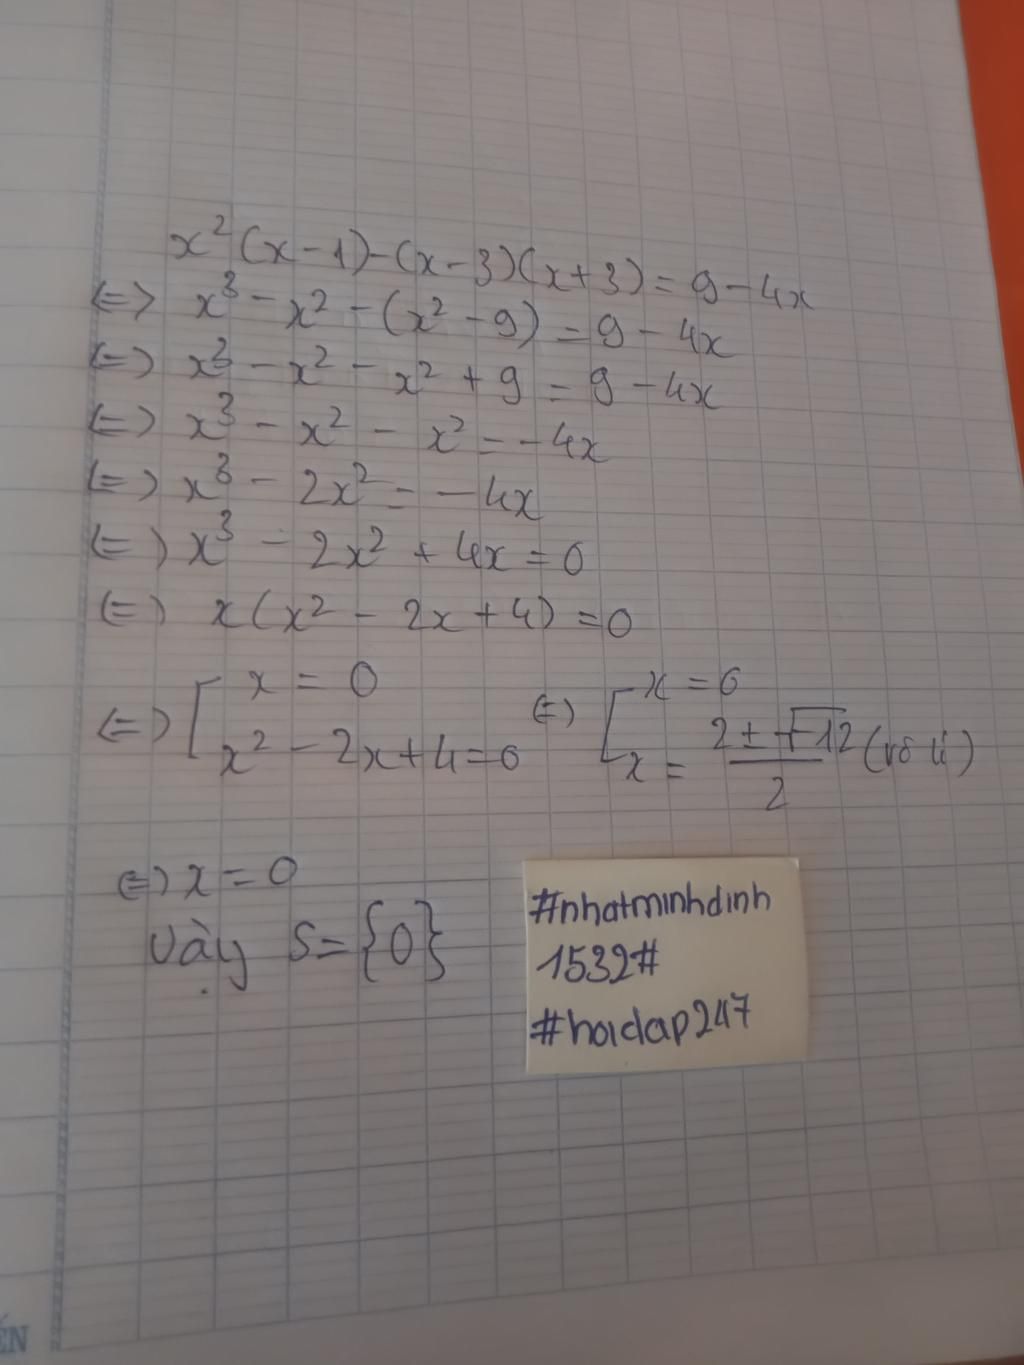 x²(x-1)-(x-3)(x+3)=9-4x
<=> x³ - x² - (x² - 9) = 9 - 4x
<=> x³ - x² - x² + 9 = 9 - 4x
<=> x³ - x² - x² = -4x
<=> x³ - 2x² = -4x
<=> x³ - 2x² + 4x = 0
<=> x(x² - 2x + 4) = 0
<=> [ x = 0
x² - 2x + 4 = 0
<=> [ x = 0
x = (2 ± √-12)/2 (vô lí)
<=> x = 0
Vậy S = {0}
#nhatminhdinh
1532#
#hoidap247
ẾN